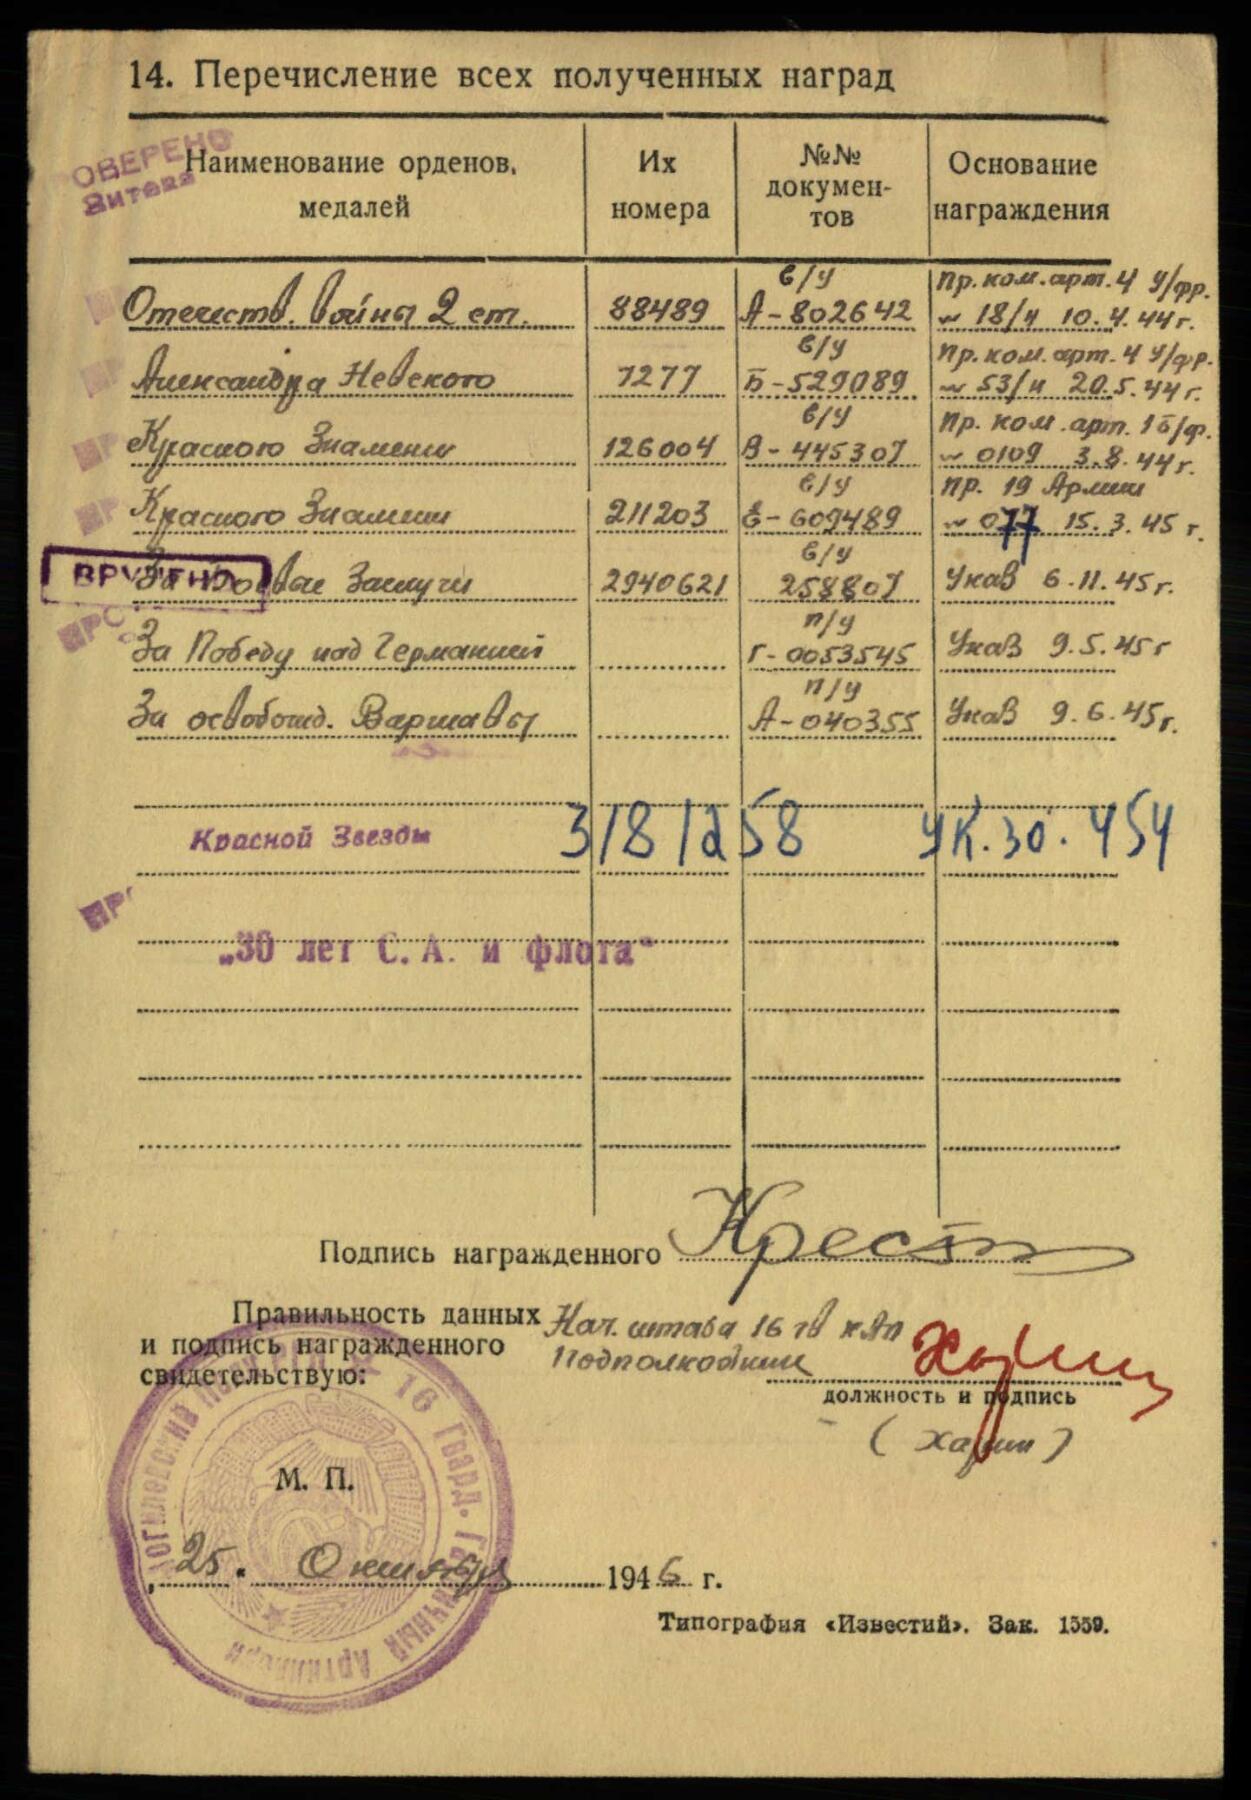 14. Перечисление всех полученных наград
ОВЕРЕНО
Наименование орденов, медалей
Их номера
№№ докумен-тов
Основание награждения
в/у Пр. ком. арт. 4 У/фр.
Отечеств. войны 2 ст. 88489 А-802642 № 18/н 10.4.44 г.
в/у Пр. ком. арт. 4 У/фр.
Александра Невского 7277 Б-529089 № 53/н 20.5.44 г.
в/у Пр. ком. арт. 1 Б/ф.
Красного Знамени 126004 В-445307 № 0109 3.8.44 г.
в/у Пр. 19 Армии
Красного Знамени 211203 Е-609489 № 077 15.3.45 г.
в/у
ВРУЧЕНО
За Боевые Заслуги 2940621 258807 Указ 6.11.45 г.
п/у
За Победу над Германией Г-0053545 Указ 9.5.45 г
п/у
За освобожд. Варшавы А-040355 Указ 9.6.45 г.
Красной Звезды 3181258 Ук. 30.4 54
„30 лет С. А. и флота"
Подпись награжденного Крест
Правильность данных
и подпись награжденного
свидетельствую:
Нач. штаба 16 гв
Подполковник
должность и подпись
(Харин)
М. П.
16 Гвард.
„25" Октября 1946 г.
Типография «Известий». Зак. 1559.